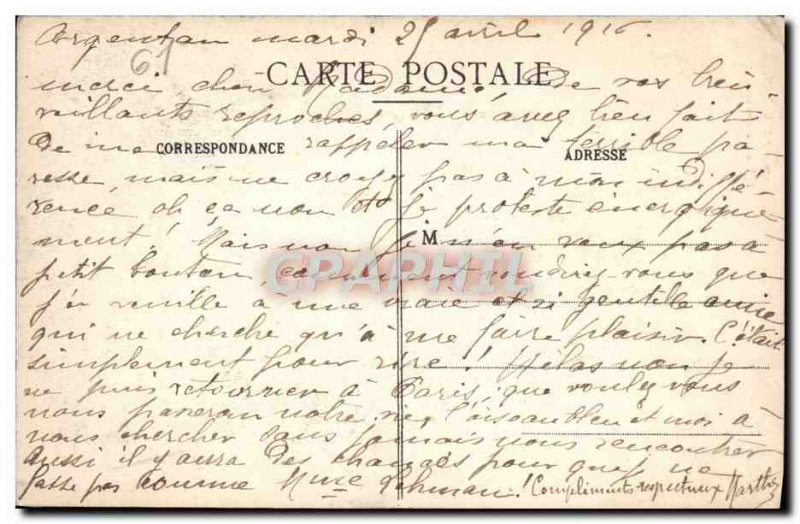 Argentan mardi 25 avril 1916.
61
CARTE POSTALE
merci chère Madame, de vos bien
veillants reproches, vous avez bien fait
de me rappeler ma terrible pa-
CORRESPONDANCE
ADRESSE
resse, mais ne croyez pas à mon indiffé-
rence, oh ça non et je proteste énergique-
ment! Mais non je n'en veux pas à
M
petit bouton, comment voudriez-vous que
CPAPHIL
j'en veuille à une vraie et si gentille amie
qui ne cherche qu'à me faire plaisir. C'était
simplement pour rire! Hélas non je
ne puis retourner à Paris, que voulez vous
nous passerons notre vie, l'oiseau bleu et moi à
nous chercher sans jamais nous rencontrer
aussi il y aura des chances pour que je ne
fasse pas comme Mme! Compliments respectueux Marthe